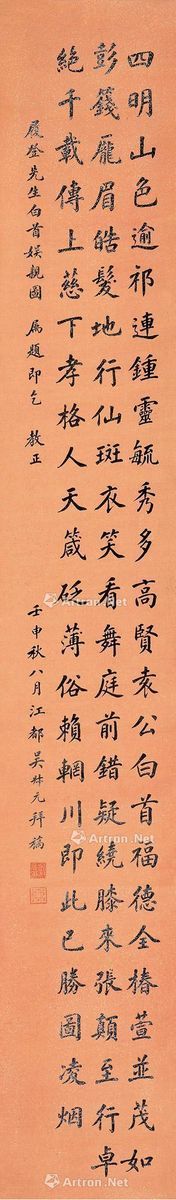 四明山色逾祁連鍾靈毓秀多高賢袁公白首福德全椿萱並茂如
彭籛龐眉皓髮地行仙斑衣笑看舞庭前錯疑繞膝來張顛至行卓
絶千載傳上慈下孝格人天箴砭薄俗賴輞川即此已勝圖凌烟
履登先生白首娛親圖 屬題即乞 教正
壬申秋八月江都吳 元拜稿
Artron.Net
Artron.Net
Artron.Net
Artron.Net